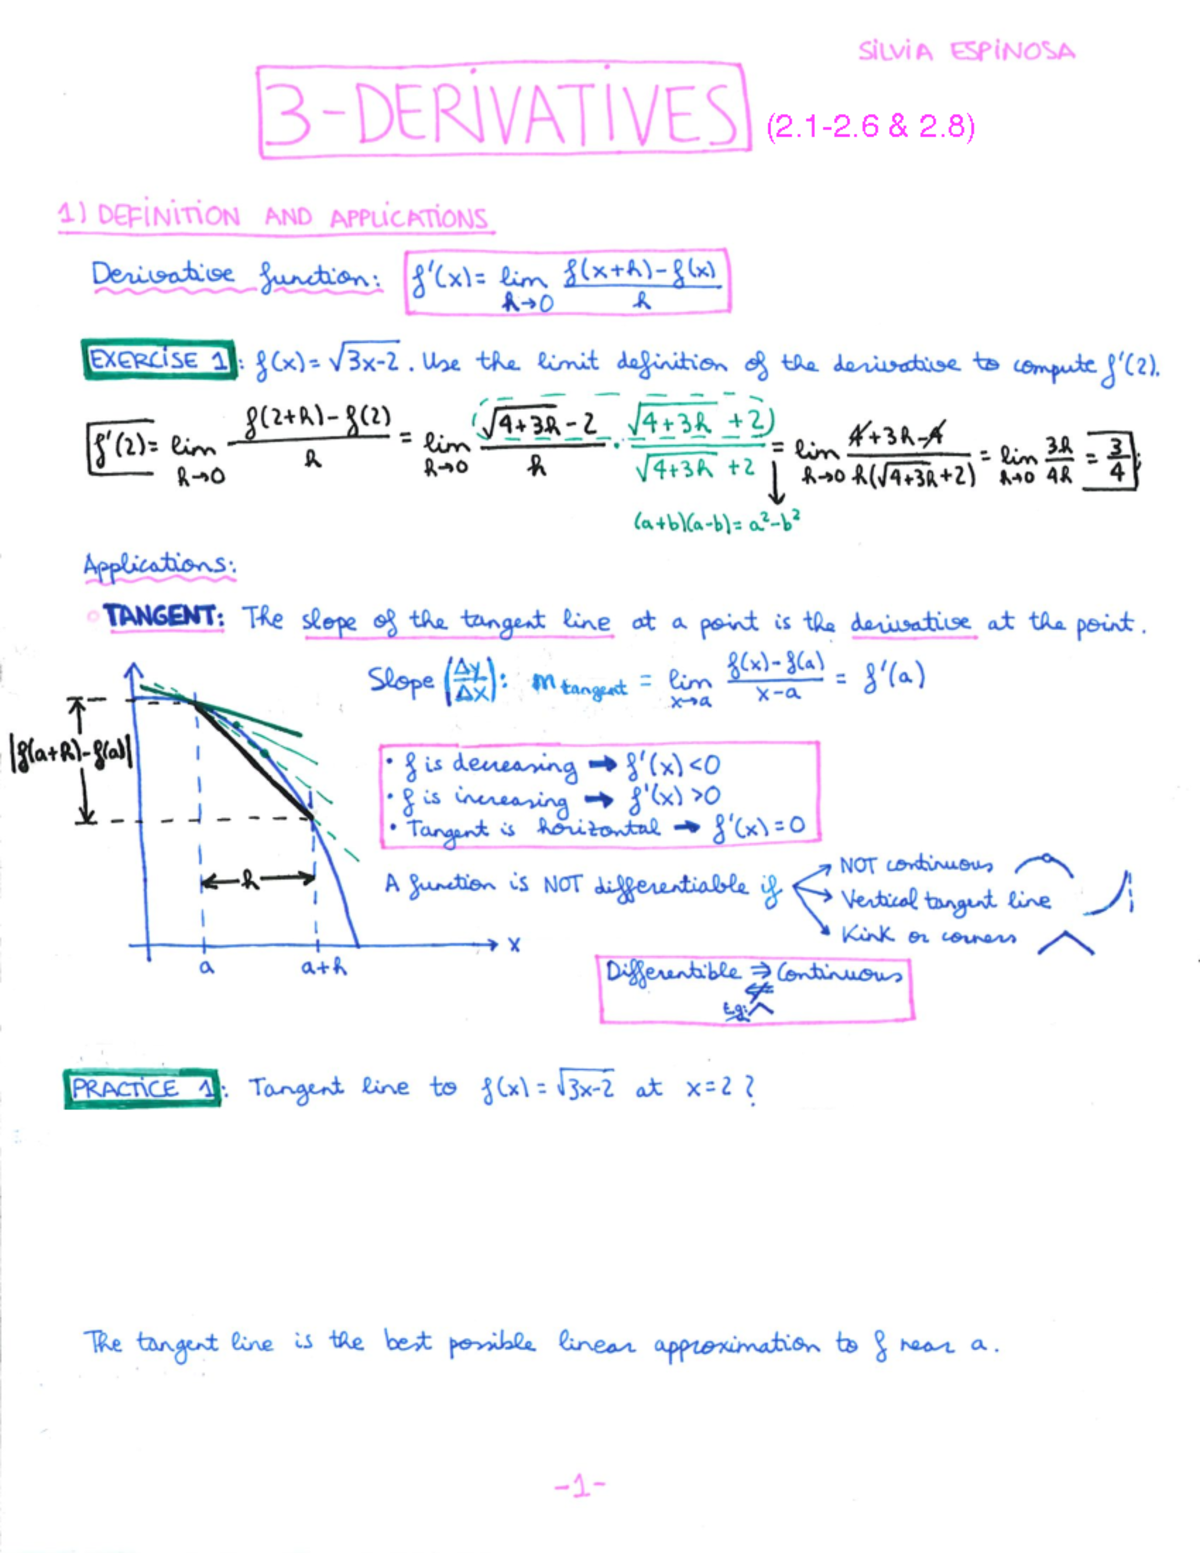 SILVIA ESPINOSA
3-DERIVATIVES (2.1-2.6 & 2.8)
1) DEFINITION AND APPLICATIONS
Derivative function: f'(x) = lim h→0 (f(x+h)-f(x))/h
EXERCISE 1: f(x) = √(3x-2). Use the limit definition of the derivative to compute f'(2).
f'(2) = lim h→0 (f(2+h)-f(2))/h = lim h→0 (√(4+3h) - 2)/h · (√(4+3h) + 2)/(√(4+3h) + 2) = lim h→0 (4+3h-4)/(h(√(4+3h)+2)) = lim h→0 3h/4h = 3/4;
(a+b)(a-b) = a²-b²
Applications:
TANGENT: The slope of the tangent line at a point is the derivative at the point.
Slope (Δy/Δx): m tangent = lim x→a (f(x)-f(a))/(x-a) = f'(a)
|f(a+h)-f(a)|
• f is decreasing → f'(x) <0
• f is increasing → f'(x) >0
• Tangent is horizontal → f'(x) = 0
h
A function is NOT differentiable if
NOT continuous
Vertical tangent line
Kink or corners
x
a
a+h
Differentible ⇒ Continuous
⇍
E.g:
PRACTICE 1: Tangent line to f(x) = √(3x-2) at x=2?
The tangent line is the best possible linear approximation to f near a.
-1-